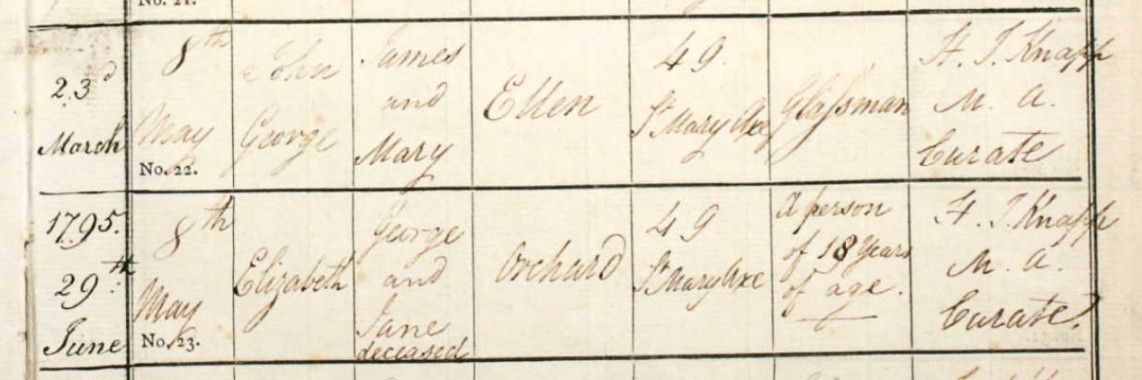 No. 21.
23d
March
8th
May
No. 22.
John
George
James
and
Mary
Ellen
49
St Mary Axe
Glassman
H. J. Knapp
M. A.
Curate
1795.
29th
June
8th
May
No. 23.
Elizabeth
George
and
Jane
deceased
Orchard
49
St Mary Axe
A person
of 18 Years
of age.
H. J. Knapp
M. A.
Curate.